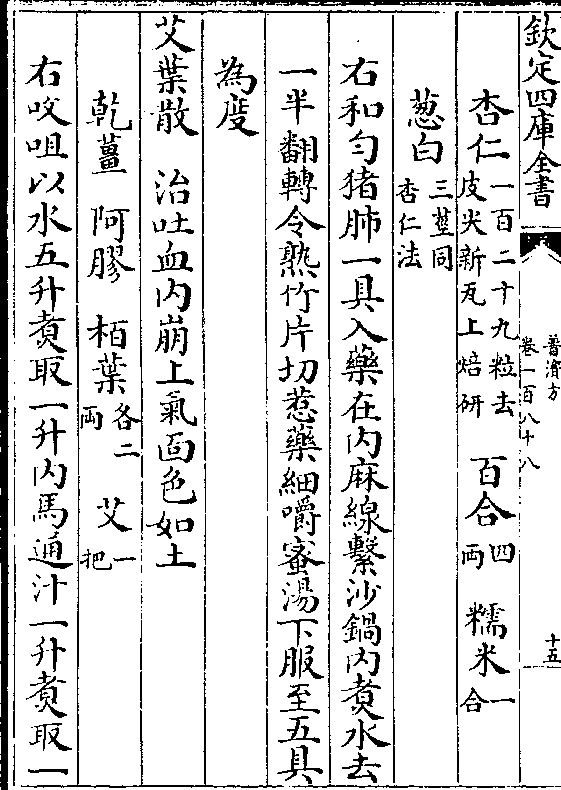 欽定四庫全書
普濟方
卷一百八十八
十五
杏仁一百二十九粒去皮尖新瓦上焙研 百合四兩 糯米一合
葱白三莖同杏仁法
右和勻猪肺一具入藥在内麻線繫沙鍋内煑水去
一半翻轉令熟竹片切惹藥細嚼蜜湯下服至五具
為度
艾葉散 治吐血内崩上氣面色如土
乾薑 阿膠 栢葉各二兩 艾一把
右㕮咀以水五升煑取一升内馬通汁一升煑取一